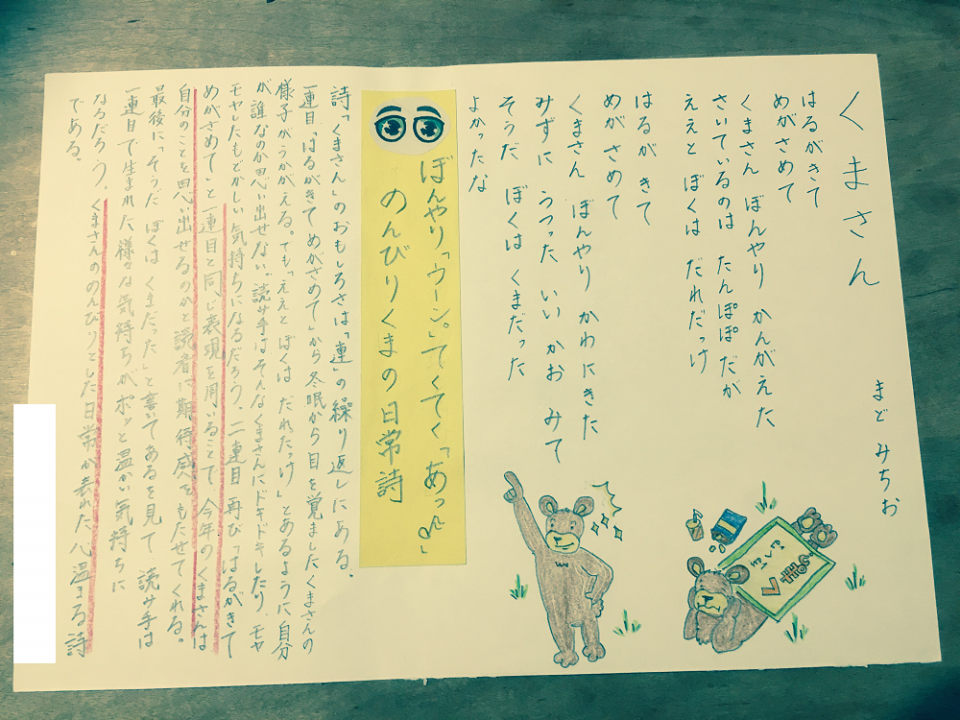 くまさん
まど みちお
はるがきて
めがさめて
くまさん ぼんやり かんがえた
さいているのは たんぽぽだが
ええと ぼくは だれだっけ
はるが きて
めが さめて
くまさん ぼんやり かわにきた
みずに うつった いい かお みて
そうだ ぼくは くまだった
よかったな
ぼんやり「ウーン。」てくてく「あっ
のんびりくまの日常詩
詩「くまさん」のおもしろさは「連」の繰り返しにある。
一連目「はるがきてめがさめて」から冬眠から目を覚ましたくまさんの
様子がうかがえる。でも「ええと ぼくは だれだっけ」とあるように自分
が誰なのか思い出せない。読み手はそんなくまさんにドキドキしたり、モヤ
モヤしたもどかしい気持ちになるだろう。二連目 再び「はるがきて
めがさめて」と一連目と同じ表現を用いることで 今年のくまさんは
自分のことを思い出せるのかと読者に期待感をもたせてくれる。
最後に「そうだ ぼくは くまだった」と書いてあるを見て 読み手は
一連目で生まれた様々な気持ちが ポッと温かい気持ちに
なるだろう。くまさんののんびりとした日常が表れた 心温まる詩
である。